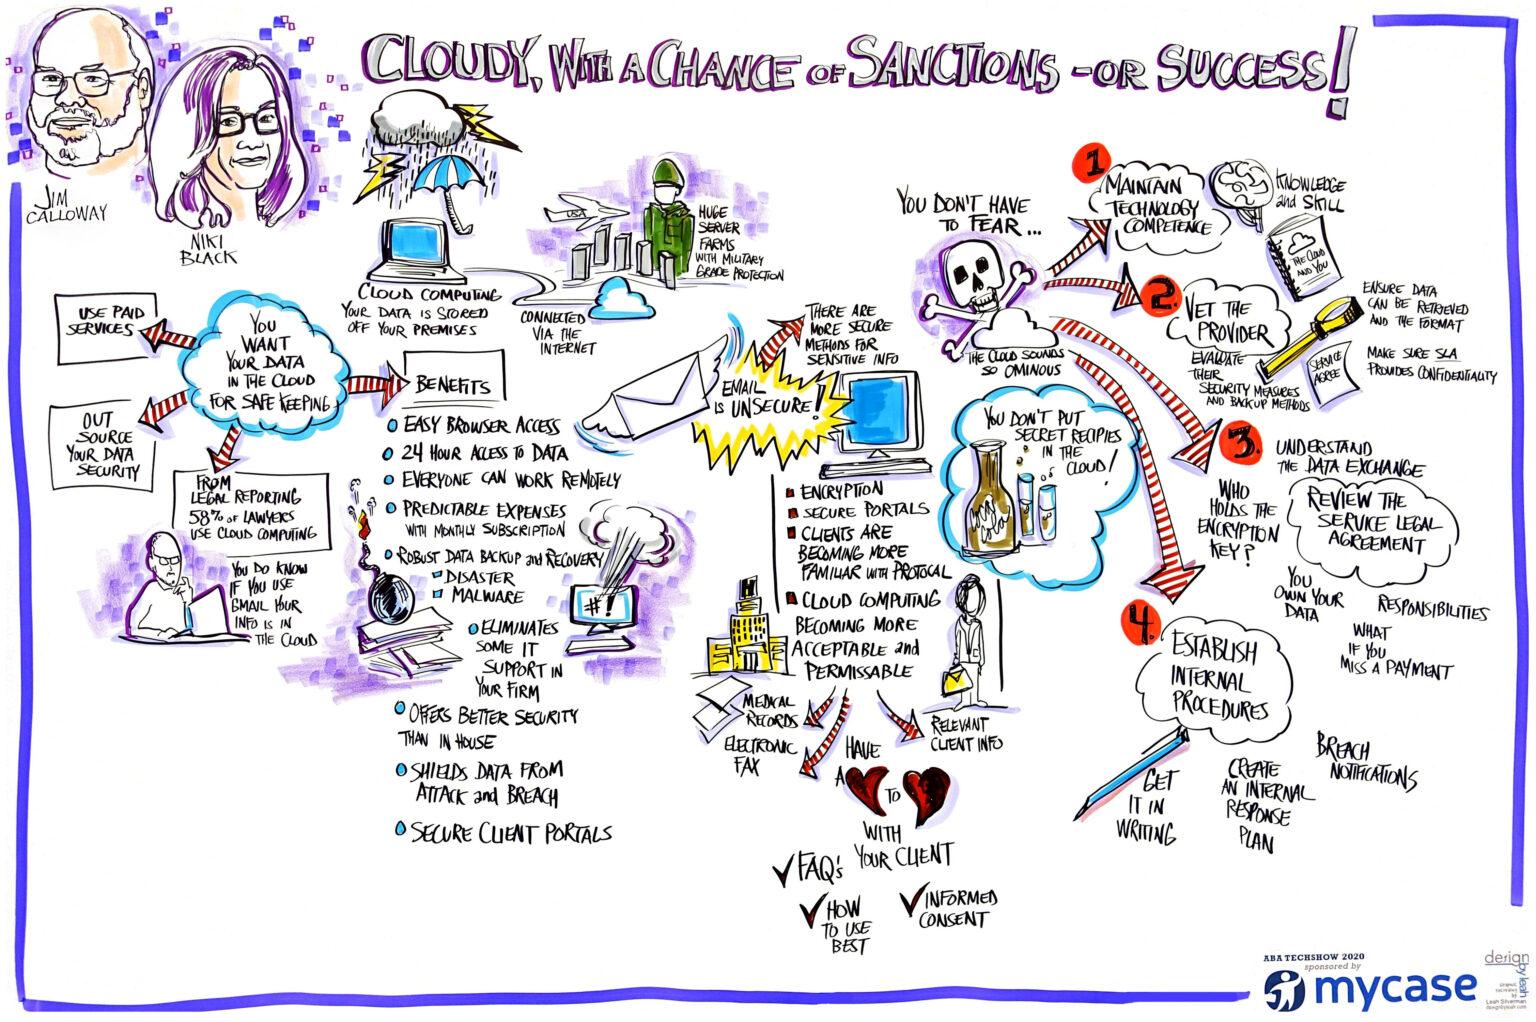 CLOUDY, WITH A CHANCE OF SANCTIONS - OR SUCCESS!
JIM
CALLOWAY
NIKI
BLACK
CLOUD COMPUTING
YOUR DATA IS STORED
OFF YOUR PREMISES
USA
HUGE
SERVER
FARMS
WITH MILITARY
GRADE PROTECTION
CONNECTED
VIA THE
INTERNET
YOU
WANT
YOUR DATA
IN THE CLOUD
FOR SAFE KEEPING
USE PAID
SERVICES
OUT
SOURCE
YOUR DATA
SECURITY
FROM
LEGAL REPORTING
58% OF LAWYERS
USE CLOUD COMPUTING
YOU DO KNOW
IF YOU USE
GMAIL YOUR
INFO IS IN
THE CLOUD
BENEFITS
EASY BROWSER ACCESS
24 HOUR ACCESS TO DATA
EVERYONE CAN WORK REMOTELY
PREDICTABLE EXPENSES
WITH MONTHLY SUBSCRIPTION
ROBUST DATA BACKUP and RECOVERY
DISASTER
MALWARE
#!
ELIMINATES
SOME IT
SUPPORT IN
YOUR FIRM
OFFERS BETTER SECURITY
THAN IN HOUSE
SHIELDS DATA FROM
ATTACK and BREACH
SECURE CLIENT PORTALS
EMAIL
IS UNSECURE!
THERE ARE
MORE SECURE
METHODS FOR
SENSITIVE INFO
ENCRYPTION
SECURE PORTALS
CLIENTS ARE
BECOMING MORE
FAMILIAR WITH PROTOCAL
CLOUD COMPUTING
BECOMING MORE
ACCEPTABLE and
PERMISSABLE
H
MEDICAL
RECORDS
ELECTRONIC
FAX
RELEVANT
CLIENT INFO
HAVE
A
TO
WITH
YOUR CLIENT
FAQ's
HOW
TO USE
BEST
INFORMED
CONSENT
YOU DON'T HAVE
TO FEAR...
THE CLOUD SOUNDS
SO OMINOUS
YOU DON'T PUT
SECRET RECIPIES
IN THE
CLOUD!
1
MAINTAIN
TECHNOLOGY
COMPETENCE
KNOWLEDGE
and SKILL
THE CLOUD
AND YOU
2.
VET THE
PROVIDER
EVALUATE
THEIR
SECURITY MEASURES
AND BACKUP METHODS
SERVICE
AGREE
ENSURE DATA
CAN BE RETRIEVED
AND THE FORMAT
MAKE SURE SLA
PROVIDES CONFIDENTIALITY
3.
UNDERSTAND
THE DATA EXCHANGE
WHO
HOLDS THE
ENCRYPTION
KEY?
REVIEW THE
SERVICE LEGAL
AGREEMENT
YOU
OWN YOUR
DATA
RESPONSIBILITIES
WHAT
IF YOU
MISS A PAYMENT
4.
ESTABLISH
INTERNAL
PROCEDURES
GET
IT IN
WRITING
CREATE
AN INTERNAL
RESPONSE
PLAN
BREACH
NOTIFICATIONS
ABA TECHSHOW 2020
sponsored by
mycase
design
by leah
Leah Silverman